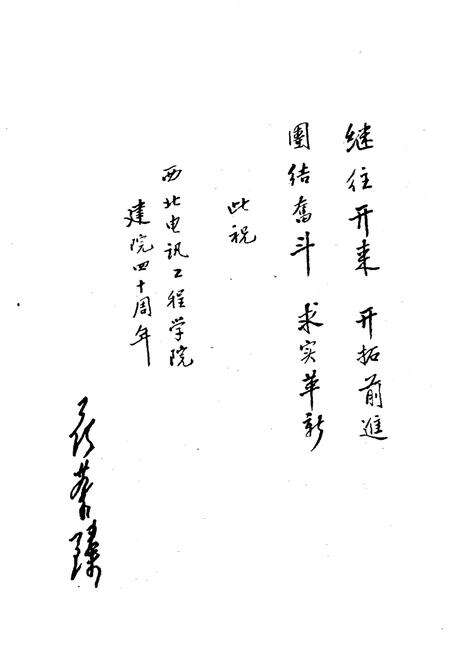 继往开来 开拓前進
團结奮斗 求实革新
此祝
西北电讯工程学院
建院四十周年
聂荣臻